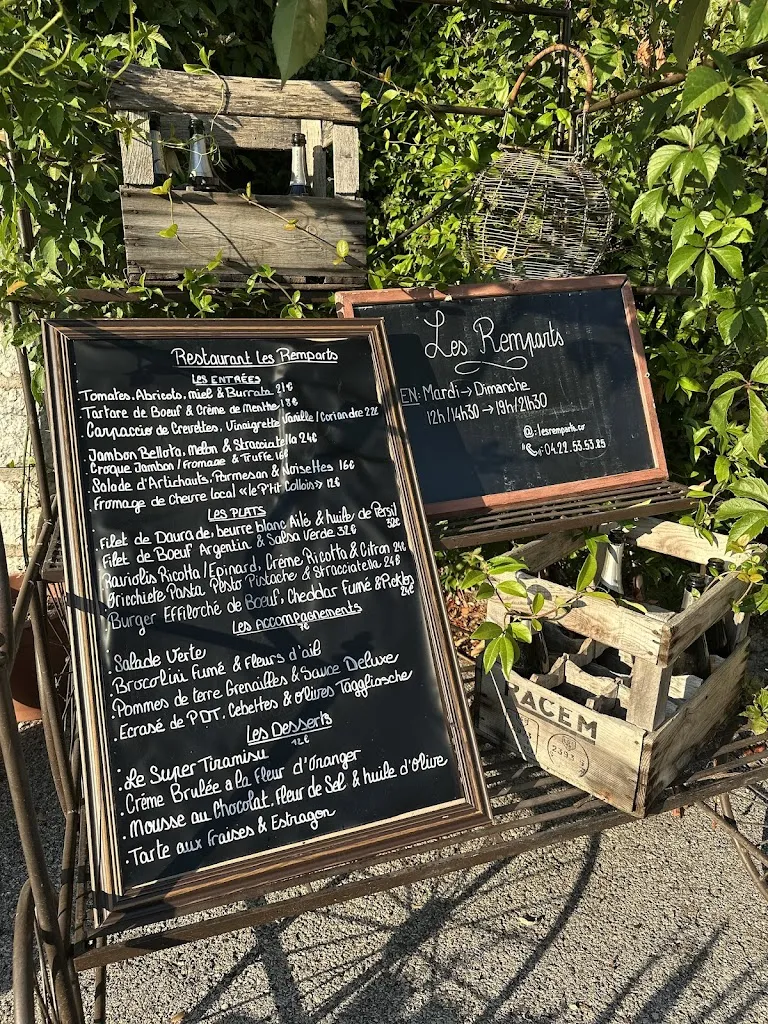 Restaurant Les Remparts
Les Entrées
Tomates, Abricots, miel & Burrata 21€
Tartare de Boeuf & Crème de Menthe 18€
Carpaccio de Crevettes, Vinaigrette Vanille / Coriandre 22€
Jambon Bellota, Melon & Stracciatella 24€
Croque Jambon / Fromage & Truffe 16€
Salade d'Artichauts, Parmesan & Noisettes 16€
Fromage de Chevre local «le P'tit Collois» 12€
Les Plats
. Filet de Daurade, beurre blanc Ailé & huile de Persil 32€
. Filet de Boeuf Argentin & Salsa Verde 32€
. Raviolis Ricotta / Epinard, Crème Ricotta & Citron 24€
. Oricchiete Pasta Pesto Pistache & Stracciatella 24€
. Burger Effiloché de Boeuf, Cheddar Fumé & Pickles 24€
Les Accompagnements
7€
. Salade Verte
. Brocolini Fumé & Fleurs d'ail
. Pommes de terre Grenailles & Sauce Deluxe
. Ecrasé de PDT, Cebettes & olives Taggliasche
Les Desserts
12€
. Le Super Tiramisu
. Crème Brulée a la Fleur d'Oranger
. Mousse au Chocolat, Fleur de Sel & huile d'olive
. Tarte aux Fraises & Estragon
Les Remparts
EN: Mardi → Dimanche
12h/14h30 → 19h/21h30
@: lesremparts.cv
: 04.22.53.53.25
PACEM